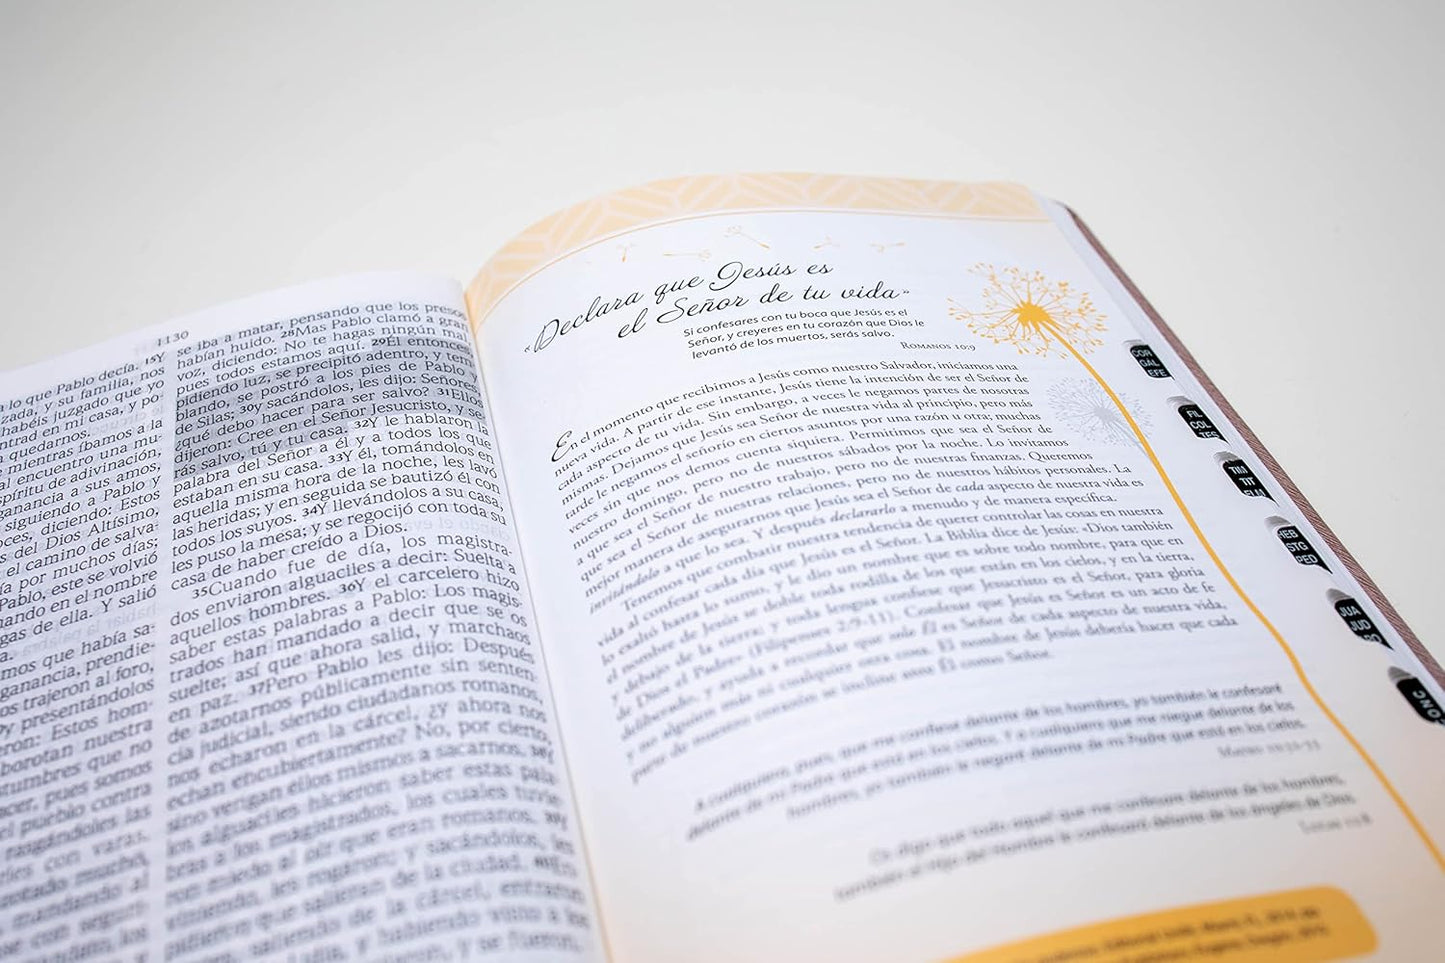 1130
o que Pablo decía. 15Y
zada, y su familia, nos
habéis juzgado que yo
ntrad en mi casa, y po-
a quedarnos.
mientras íbamos a la
al encuentro una mu-
spíritu de adivinación,
ganancia a sus amos,
siguiendo a Pablo y
oces, diciendo: Estos
s del Dios Altísimo,
el camino de salva-
a por muchos días;
Pablo, este se volvió
mando en el nombre
gas de ella. Y salió
a.
mos que había sa-
ganancia, prendie-
os trajeron al foro,
y presentándolos
eron: Estos hom-
borotan nuestra
stumbres que no
acer, pues somos
el pueblo contra
rasgándoles las
les con varas.
se iba a matar, pensando que los presos
habían huido. 28Mas Pablo clamó a gran
voz, diciendo: No te hagas ningún mal,
pues todos estamos aquí. 29Él entonces,
pidiendo luz, se precipitó adentro, y tem-
blando, se postró a los pies de Pablo y
de Silas; 30y sacándolos, les dijo: Señores,
¿qué debo hacer para ser salvo? 31Ellos
dijeron: Cree en el Señor Jesucristo, y se-
rás salvo, tú y tu casa. 32Y le hablaron la
palabra del Señor a él y a todos los que
estaban en su casa. 33Y él, tomándolos en
aquella misma hora de la noche, les lavó
las heridas; y en seguida se bautizó él con
todos los suyos. 34Y llevándolos a su casa,
les puso la mesa; y se regocijó con toda su
casa de haber creído a Dios.
35Cuando fue de día, los magistra-
dos enviaron alguaciles a decir: Suelta a
aquellos hombres. 36Y el carcelero hizo
saber estas palabras a Pablo: Los magis-
trados han mandado a decir que se os
suelte; así que ahora salid, y marchaos
en paz. 37Pero Pablo les dijo: Después
de azotarnos públicamente sin senten-
cia judicial, siendo ciudadanos romanos,
nos echaron en la cárcel, ¿y ahora nos
echan encubiertamente? No, por cierto,
sino vengan ellos mismos a sacarnos. 38Y
los alguaciles hicieron saber estas pala-
bras a los magistrados, los cuales tuvie-
ron miedo al oír que eran romanos. 39Y
viniendo, les rogaron; y sacándolos, les
pidieron que salieran de la ciudad.
«Declara que Jesús es
el Señor de tu vida»
Si confesares con tu boca que Jesús es el
Señor, y creyeres en tu corazón que Dios le
levantó de los muertos, serás salvo.
Romanos 10:9
En el momento que recibimos a Jesús como nuestro Salvador, iniciamos una
nueva vida. A partir de ese instante, Jesús tiene la intención de ser el Señor de
cada aspecto de tu vida. Sin embargo, a veces le negamos partes de nosotras
mismas. Dejamos que Jesús sea Señor de nuestra vida al principio; pero más
tarde le negamos el señorío en ciertos asuntos por una razón u otra; muchas
veces sin que nos demos cuenta siquiera. Permitimos que sea el Señor de
nuestro domingo, pero no de nuestros sábados por la noche. Lo invitamos
a que sea el Señor de nuestro trabajo, pero no de nuestras finanzas. Queremos
que sea el Señor de nuestras relaciones, pero no de nuestros hábitos personales. La
mejor manera de asegurarnos que Jesús sea el Señor de cada aspecto de nuestra vida es
invitándolo a que lo sea. Y después declararlo a menudo y de manera específica.
Tenemos que combatir nuestra tendencia de querer controlar las cosas en nuestra
vida al confesar cada día que Jesús es el Señor. La Biblia dice de Jesús: «Dios también
lo exaltó hasta lo sumo, y le dio un nombre que es sobre todo nombre, para que en
el nombre de Jesús se doble toda rodilla de los que están en los cielos, y en la tierra,
y debajo de la tierra; y toda lengua confiese que Jesucristo es el Señor, para gloria
de Dios el Padre» (Filipenses 2:9-11). Confesar que Jesús es Señor es un acto de fe
deliberado, y ayuda a recordar que solo Él es Señor de cada aspecto de nuestra vida,
y no alguien más ni cualquier otra cosa. El nombre de Jesús debería hacer que cada
parte de nuestro corazón se incline ante Él como Señor.
A cualquiera, pues, que me confiese delante de los hombres, yo también le confesaré
delante de mi Padre que está en los cielos. Y a cualquiera que me niegue delante de los
hombres, yo también le negaré delante de mi Padre que está en los cielos.
Mateo 10:32-33
Os digo que todo aquel que me confesare delante de los hombres,
también el Hijo del Hombre le confesará delante de los ángeles de Dios.
Lucas 12:8
COR
GÁL
EFE
FIL
COL
TES
TIM
TIT
FLM
HEB
STG
PED
JUA
JUD